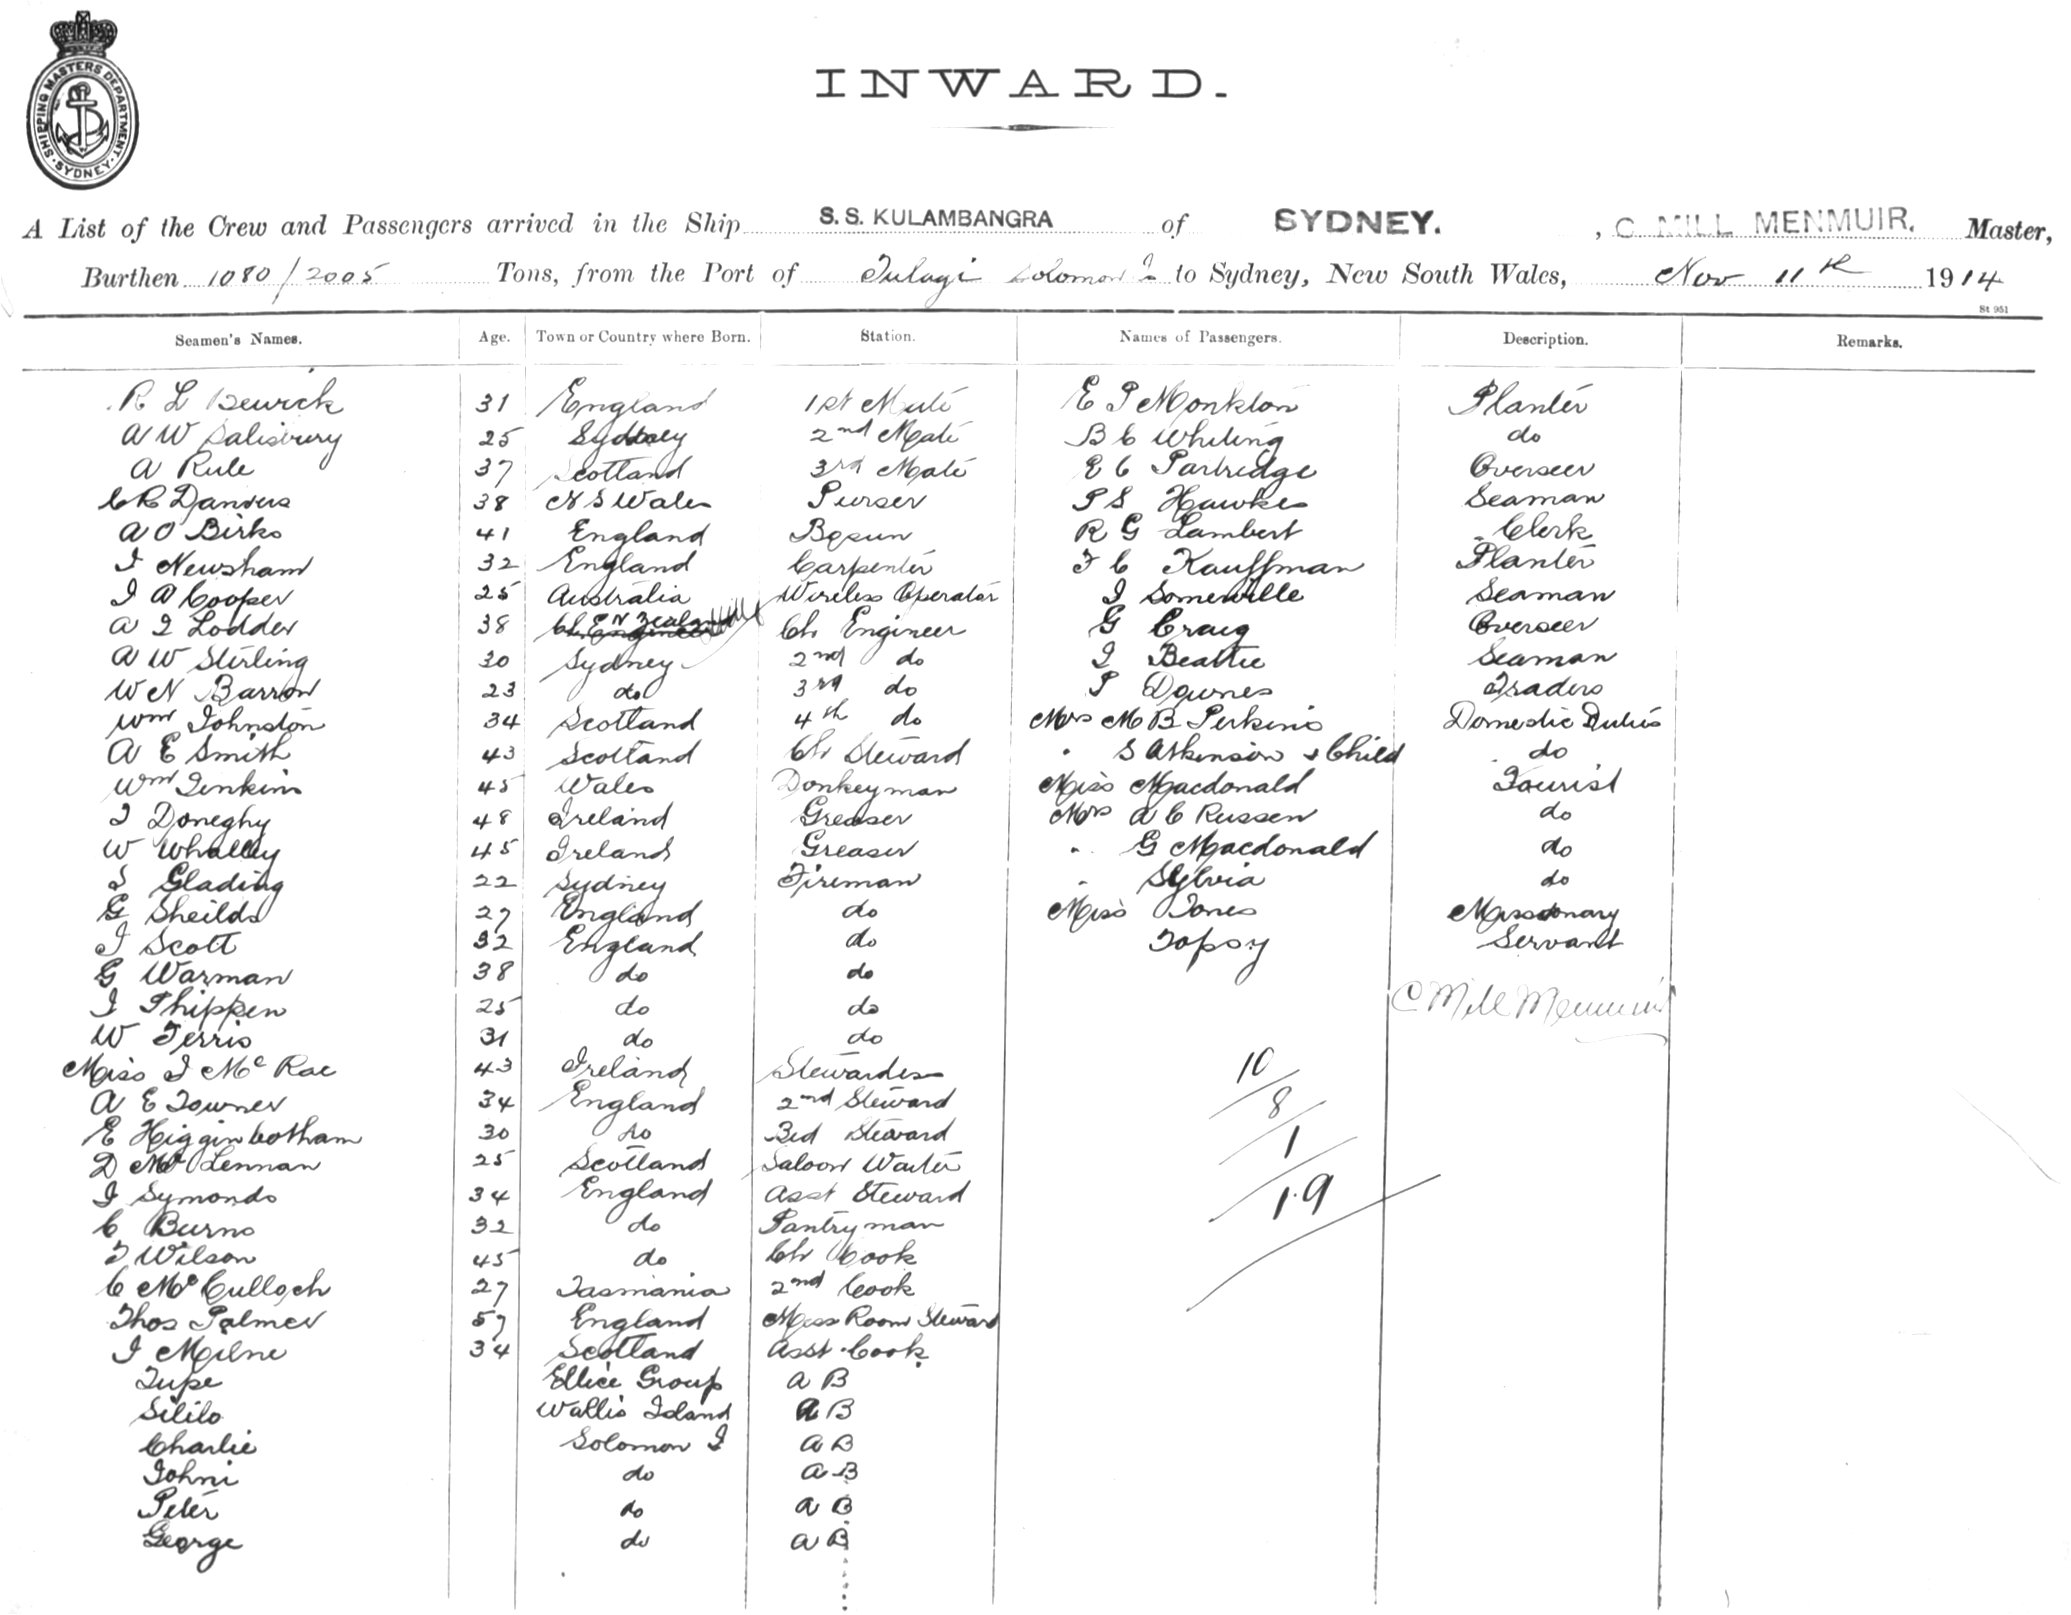 SHIPPING MASTERS DEPARTMENT
SYDNEY
INWARD.
A List of the Crew and Passengers arrived in the Ship S. S. KULAMBANGRA of SYDNEY. , C MILL MENMUIR. Master,
Burthen 1080/2005 Tons, from the Port of Tulagi Solomon Is to Sydney, New South Wales, Nov 11th 1914
St 951
Seamen's Names. Age. Town or Country where Born. Station. Names of Passengers. Description. Remarks.
R L Bewick 31 England 1st Mate E P Monkton Planter
A W Salisbury 25 Sydney 2nd Mate B C Whiting do
A Rule 37 Scotland 3rd Mate E C Partridge Overseer
C R Danvers 38 N S Wales Purser P S Hawkes Seaman
A O Birks 41 England Bosun R G Lambert Clerk
J Newsham 32 England Carpenter F C Kauffman Planter
J A Cooper 25 Australia Wireless Operator J Somerville Seaman
A J Lodder 38 N Zealand Ch Engineer G Craig Overseer
A W Stirling 30 Sydney 2nd do J Beattie Seaman
W N Barron 23 do 3rd do P Downes Traders
Wm Johnston 34 Scotland 4th do Mrs M B Perkins Domestic Duties
A E Smith 43 Scotland Ch Steward " S Atkinson & Child do
Wm Jenkins 45 Wales Donkeyman Miss Macdonald Tourist
J Doneghy 48 Ireland Greaser Mrs A C Russen do
W Whalley 45 Ireland Greaser " G Macdonald do
S Glading 22 Sydney Fireman " Sylvia do
G Sheilds 27 England do Miss Jones Missionary
J Scott 32 England do Topsy Servant
G Warman 38 do do
J Phippen 25 do do C Mill Menmuir
W Ferris 31 do do
Miss J McRae 43 Ireland Stewardess 10
A E Towner 34 England 2nd Steward 8
E Higginbotham 30 do Bed Steward 1
D McLennan 25 Scotland Saloon Waiter
J Symonds 34 England Asst Steward 19
C Burns 32 do Pantryman
J Wilson 45 do Ch Cook
C McCulloch 27 Tasmania 2nd Cook
Thos Palmer 57 England Mess Room Steward
J Milne 34 Scotland Asst Cook
Tupe Ellice Group A B
Sililo Wallis Island A B
Charlie Solomon I A B
Johni do A B
Peter do A B
George do A B